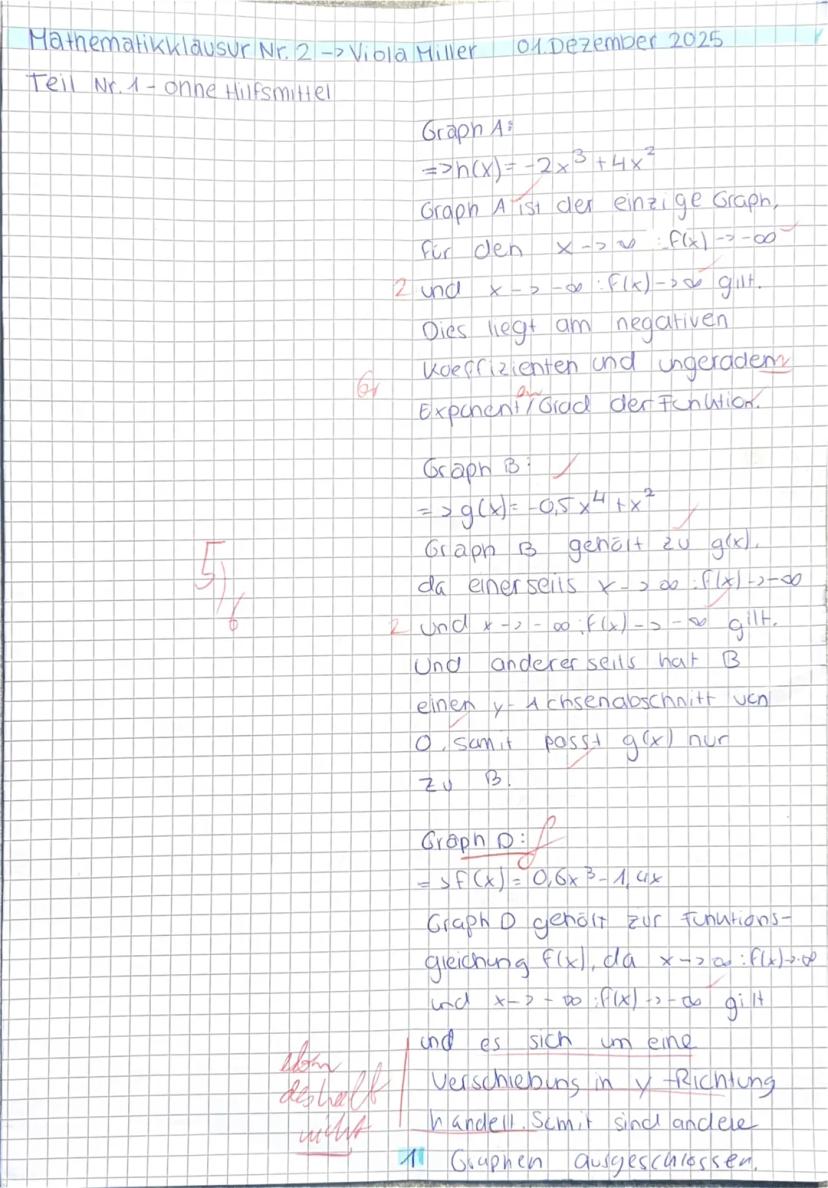 Mathematikklausur Nr. 2 -> Viola Miller 01. Dezember 2025
Teil Nr. 1 - ohne Hilfsmittel
Graph A:
=> h(x) = -2x³ + 4x²
Graph A ist der einzige Graph,
für den x -> ∞ : f(x) -> -∞
2 und x -> -∞ : f(x) -> ∞ gilt.
Dies liegt am negativen
Koeffizienten und ungeradem
Gr
Exponent / Grad der Funktion.
Graph B:
=> g(x) = -0,5x⁴ + x²
Graph B gehört zu g(x),
5/6
da einerseits x -> ∞ : f(x) -> -∞
2 und x -> -∞ : f(x) -> -∞ gilt.
Und andererseits hat B
einen y-Achsenabschnitt von
0, somit passt g(x) nur
zu B.
Graph D: f
=> f(x) = 0,6x³ - 1,4x
Graph D gehört zur Funktions-
gleichung f(x), da x -> ∞ : f(x) -> ∞
und x -> -∞ : f(x) -> -∞ gilt
und es sich um eine
Verschiebung in y-Richtung
handelt. Somit sind andere
deshalb
nicht
1 Graphen ausgeschlossen.